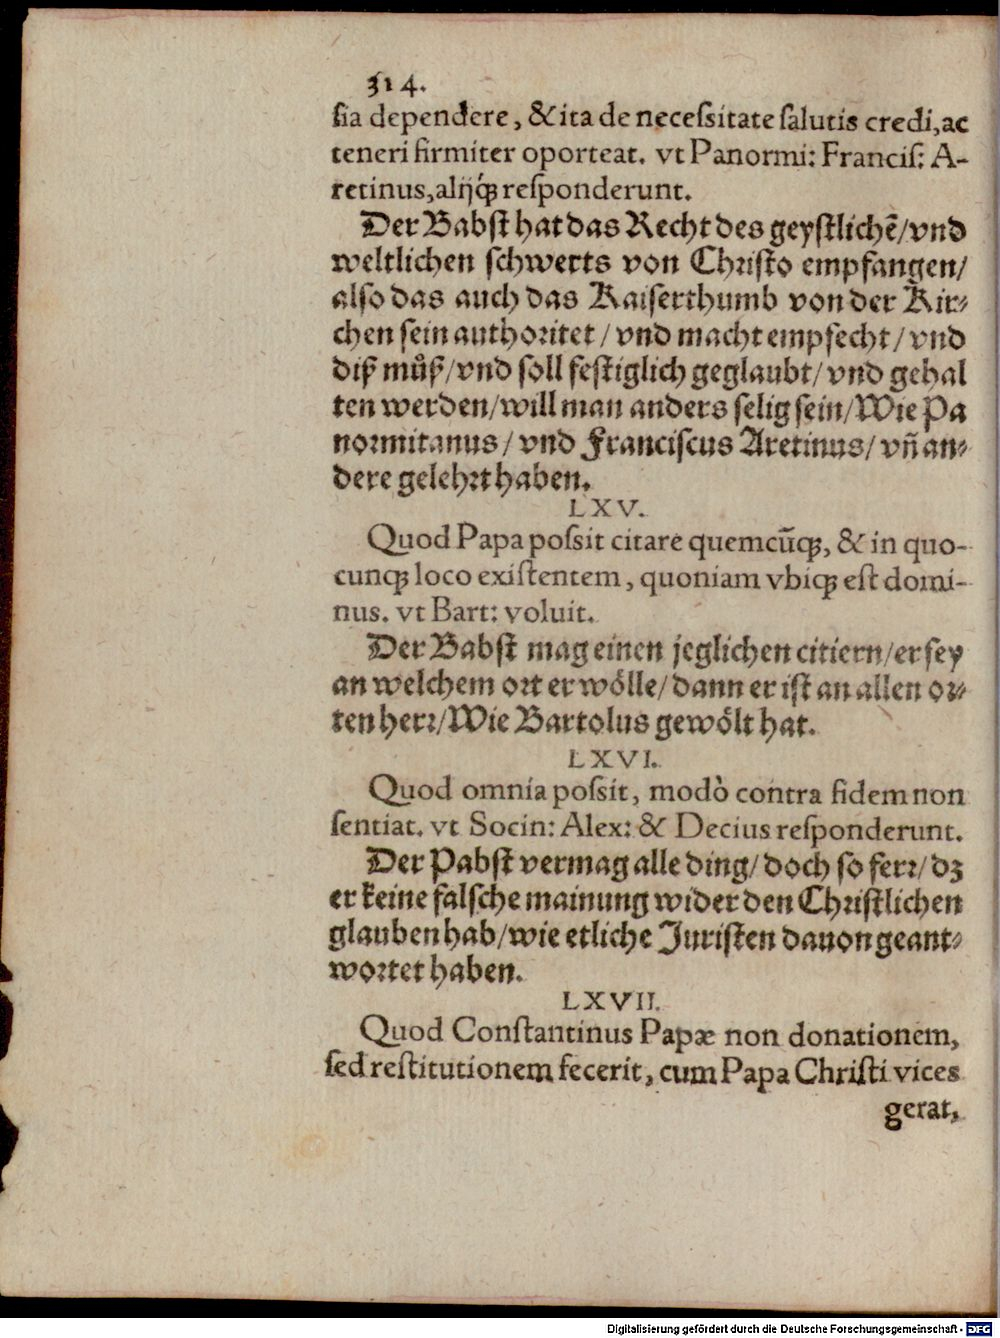 314.
ſia dependere, & ita de neceſsitate ſalutis credi, ac
teneri firmiter oporteat. vt Panormi: Franciſ: A-
retinus, alijq́ꝫ reſponderunt.
Der Babſt hat das Recht des geyſtlichē/ vnd
weltlichen ſchwerts von Chriſto empfangen/
alſo das auch das Kaiſerthumb von der Kir⸗
chen ſein authoritet/ vnd macht empfecht/ vnd
diß můß/ vnd ſoll feſtiglich geglaubt/ vnd gehal
ten werden/ will man anders ſelig ſein/ Wie Pa
normitanus/ vnd Franciſcus Aretinus/ vñ an⸗
dere gelehrt haben.
LXV.
Quod Papa poſsit citare quemcūqꝫ, & in quo-
cunqꝫ loco exiſtentem, quoniam vbiqꝫ eſt domi-
nus. vt Bart: voluit.
Der Babſt mag einen jeglichen citiern/ er ſey
an welchem ort er wölle/ dann er iſt an allen or⸗
ten herr/ Wie Bartolus gewölt hat.
LXVI.
Quod omnia poſsit, modò contra fidem non
ſentiat. vt Socin: Alex: & Decius reſponderunt.
Der Pabſt vermag alle ding/ doch ſo ferr/ dz
er keine falſche mainung wider den Chriſtlichen
glauben hab/ wie etliche Juriſten dauon geant⸗
wortet haben.
LXVII.
Quod Conſtantinus Papæ non donationem,
ſed reſtitutionem fecerit, cum Papa Chriſti vices
gerat,
Digitalisierung gefördert durch die Deutsche Forschungsgemeinschaft - DFG